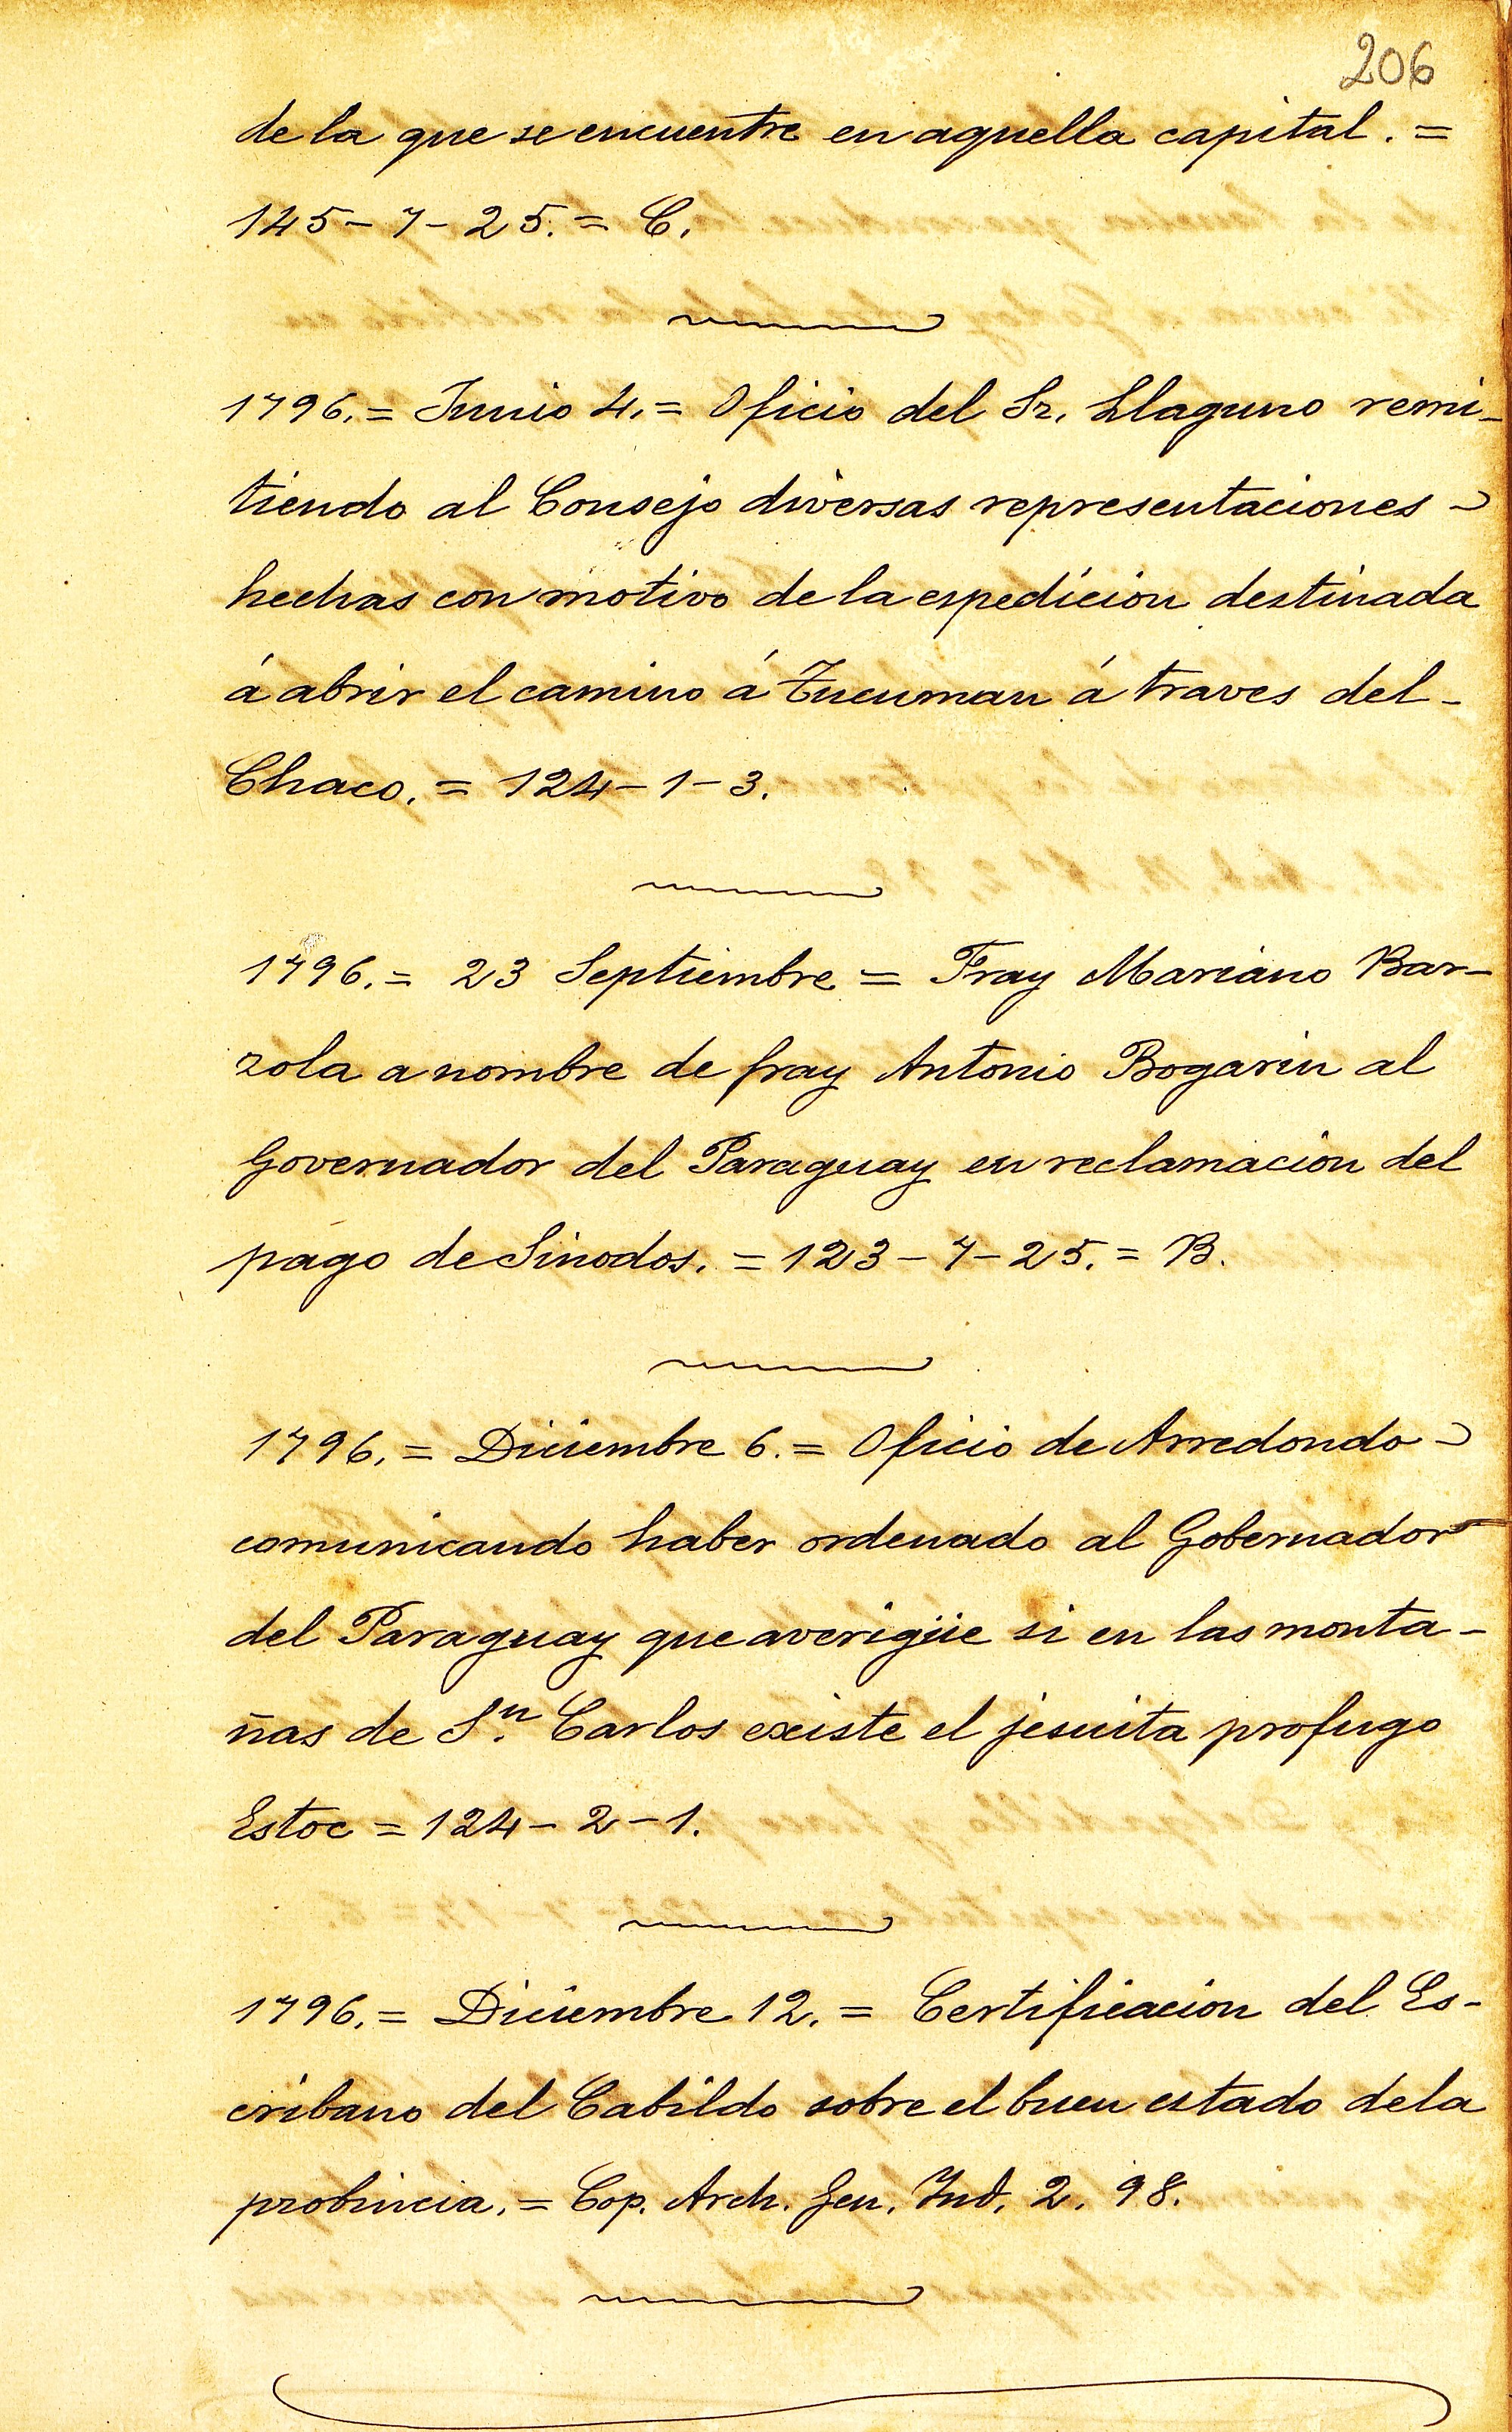 206
de la que se encuentre en aquella capital. =
145-7-25. = C.
1796. = Junio 4. = Oficio del Sr. Llaguno remi-
tiendo al Consejo diversas representaciones -
hechas con motivo de la espedicion destinada
á abrir el camino á Tucuman á traves del -
Chaco. = 124-1-3.
1796. = 23 Septiembre = Fray Mariano Bar-
zola a nombre de fray Antonio Bogarin al
Governador del Paraguay en reclamacion del
pago de Sinodos. = 123-7-25. = B.
1796. = Diciembre 6. = Oficio de Arredondo -
comunicando haber ordenado al Gobernador
del Paraguay que averigüe si en las monta-
ñas de Sn. Carlos existe el jesuita profugo
Estoc = 124-2-1.
1796. = Diciembre 12. = Certificacion del Es-
cribano del Cabildo sobre el buen estado de la
probincia. = Cop. Arch. Gen. Ind. 2. 98.